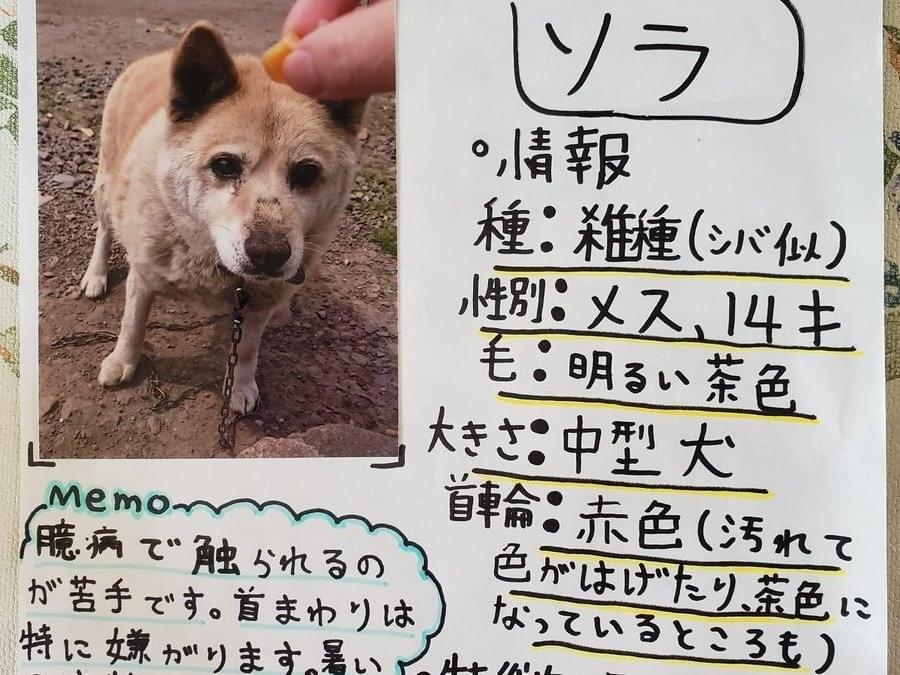 ソラ
○情報
種:雑種(シバ似)
性別:メス、14キ
毛:明るい茶色
大きさ:中型犬
首輪:赤色(汚れて
色がはげたり、茶色に
なっているところも)
Memo
臆病で触られるの
が苦手です。首まわりは
特に嫌がります。暑い